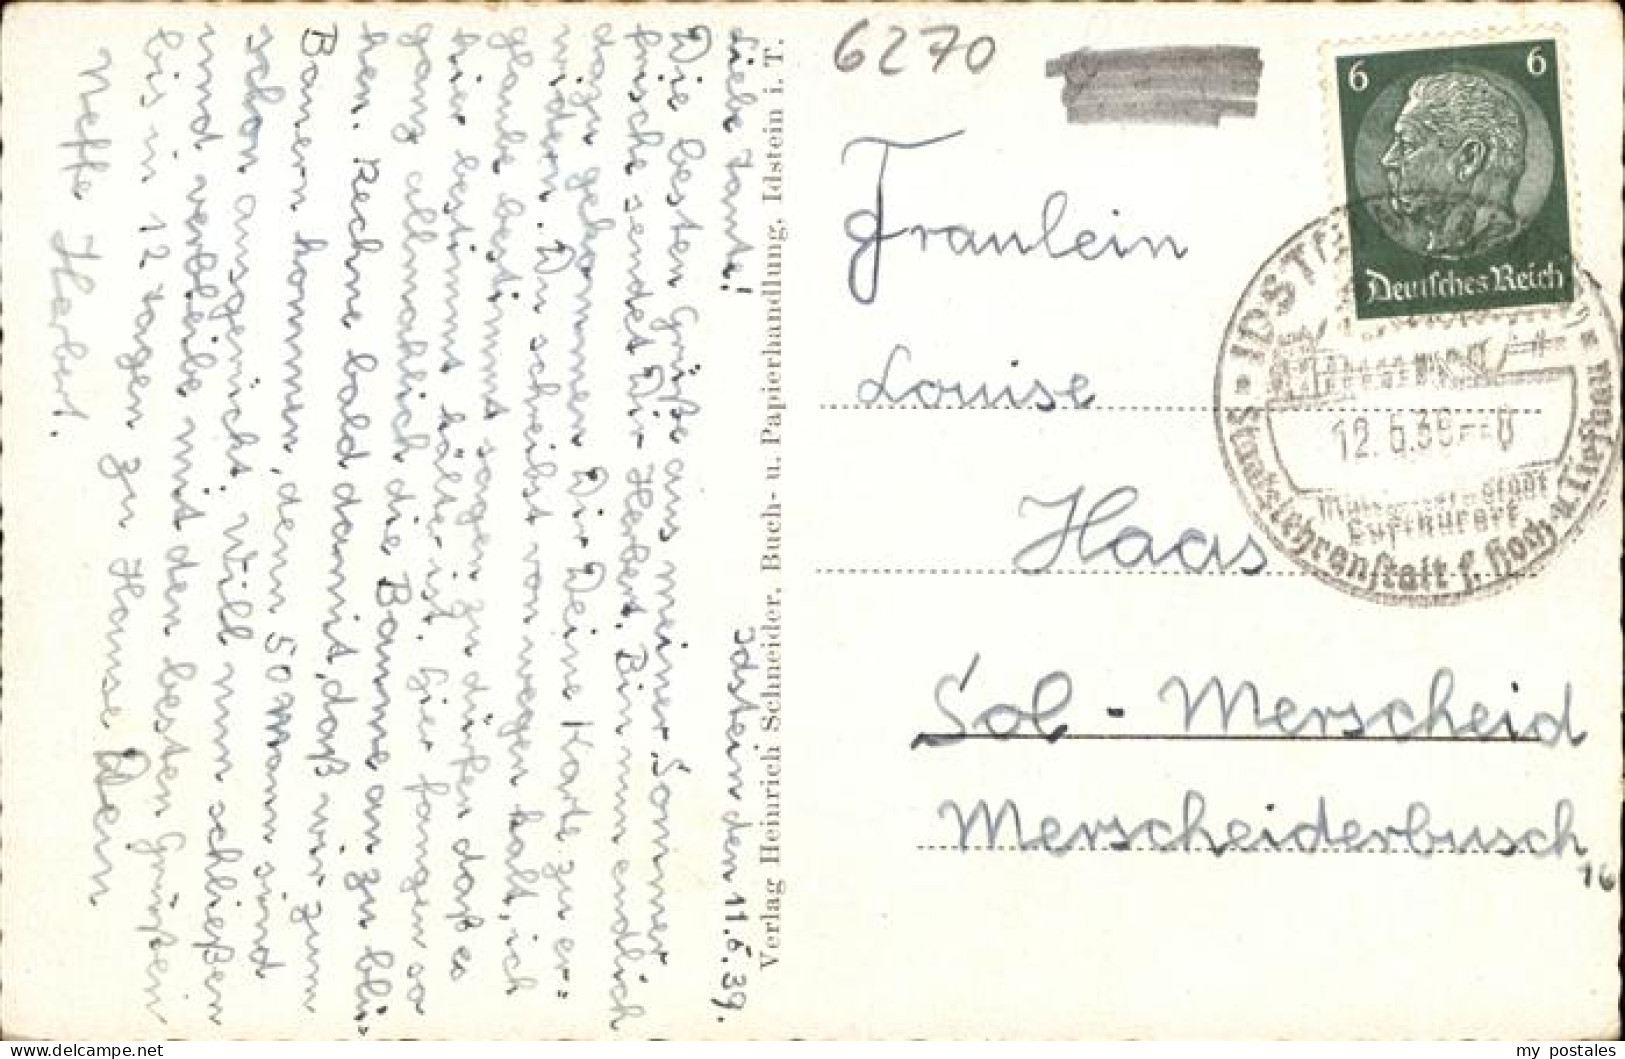 6270
Idstein den 11.6.39.
Liebe Tante!
Die besten Grüße aus meiner Sommer
frische sendet Dir Herbert. Bin nun endlich
dazu gekommen Dir Deine Karte zu er=
widern. Du schreibst von wegen kalt, ich
glaube bestimmt sagen zu dürfen daß es
hier bestimmt kälter ist. Hier fangen so
ganz allmählich die Bäume an zu blü=
hen. Rechne bald damit, daß wir zum
Bauern kommen, denn 50 Mann sind
schon ausgerückt. Will nun schließen
und verbleibe mit den besten Grüßen
bis in 12 Tagen zu Hause Dein
Neffe Herbert.
Verlag Heinrich Schneider, Buch- u. Papierhandlung, Idstein i. T.
6 6
Deutsches Reich
IDSTEIN
12.6.39
Luftkurort
Staatslehranstalt f. Hoch- u. Tiefbau
Fraulein
Louise
Haas
Sol - Merscheid
Merscheiderbusch
16
my postales